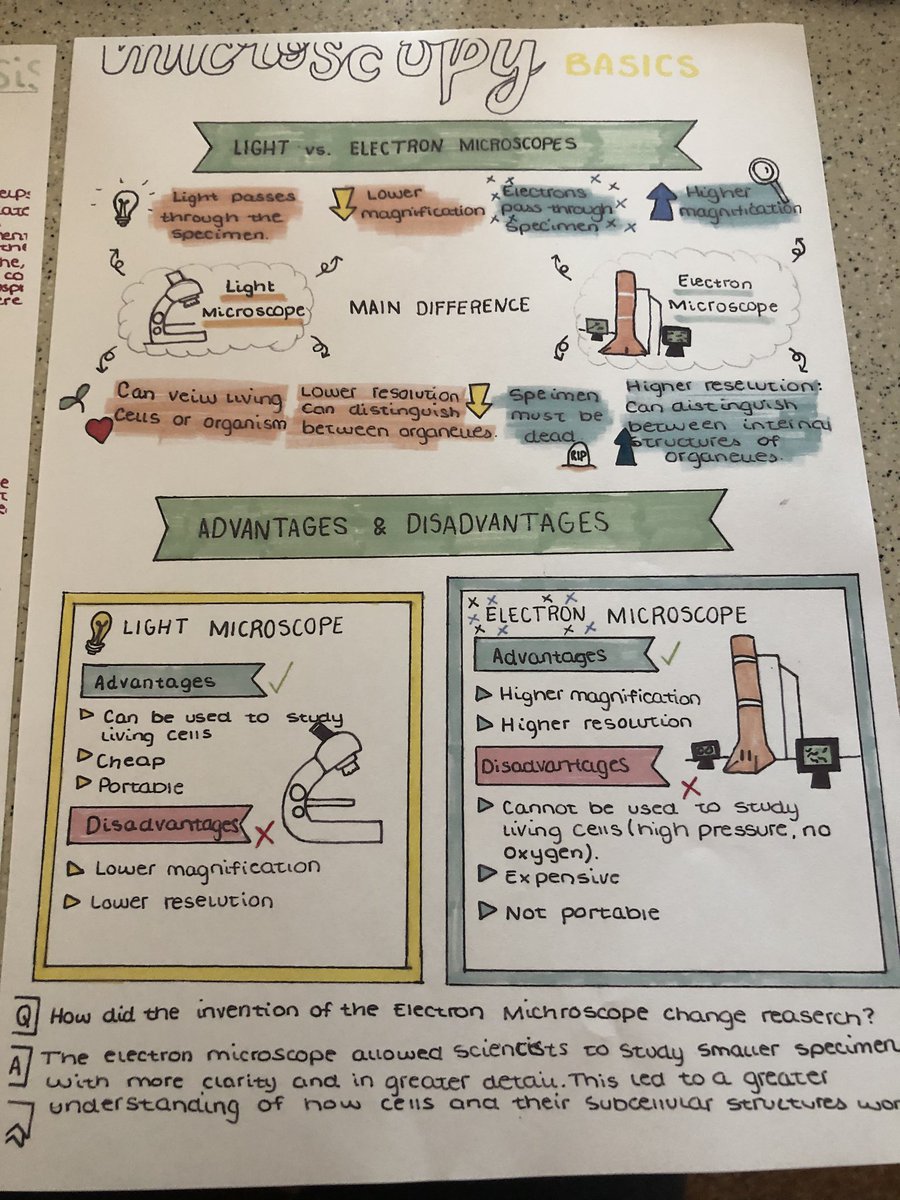 microscopy BASICS
LIGHT vs. ELECTRON MICROSCOPES
Light passes
through the
specimen.
Lower
magnification
Electrons
pass through
specimen
Higher
magnification
Light
Microscope
MAIN DIFFERENCE
Electron
Microscope
Can veiw living
cells or organism
Lower resolution
can distinguish
between organelles.
Specimen
must be
dead
RIP
Higher reselution:
Can distinguish
between internal
structures of
organelles.
ADVANTAGES & DISADVANTAGES
LIGHT MICROSCOPE
Advantages
Can be used to study
living cells
Cheap
Portable
Disadvantages
Lower magnification
Lower reselution
ELECTRON MICROSCOPE
Advantages
Higher magnification
Higher resolution
Disadvantages
Cannot be used to study
living cells (high pressure, no
oxygen).
Expensive
Not portable
Q How did the invention of the Electron Michroscope change reaserch?
A The electron microscope allowed scientists to study smaller specimen
with more clarity and in greater detail. This led to a greater
understanding of how cells and their subcellular structures wor